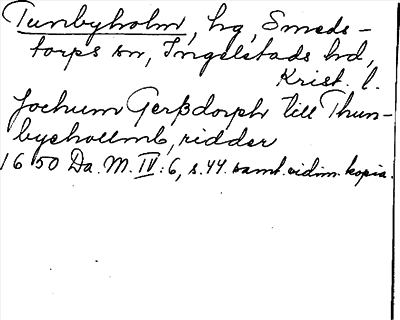 Tunbyholm, hg, Smeds-
torps sn, Ingelstads hd,
Krist. l.
Jochum Gerßdorph till Thun-
byehollmb, ridder
1650 Da. M. IV:6, s. 44. samt. vidim. kopia.